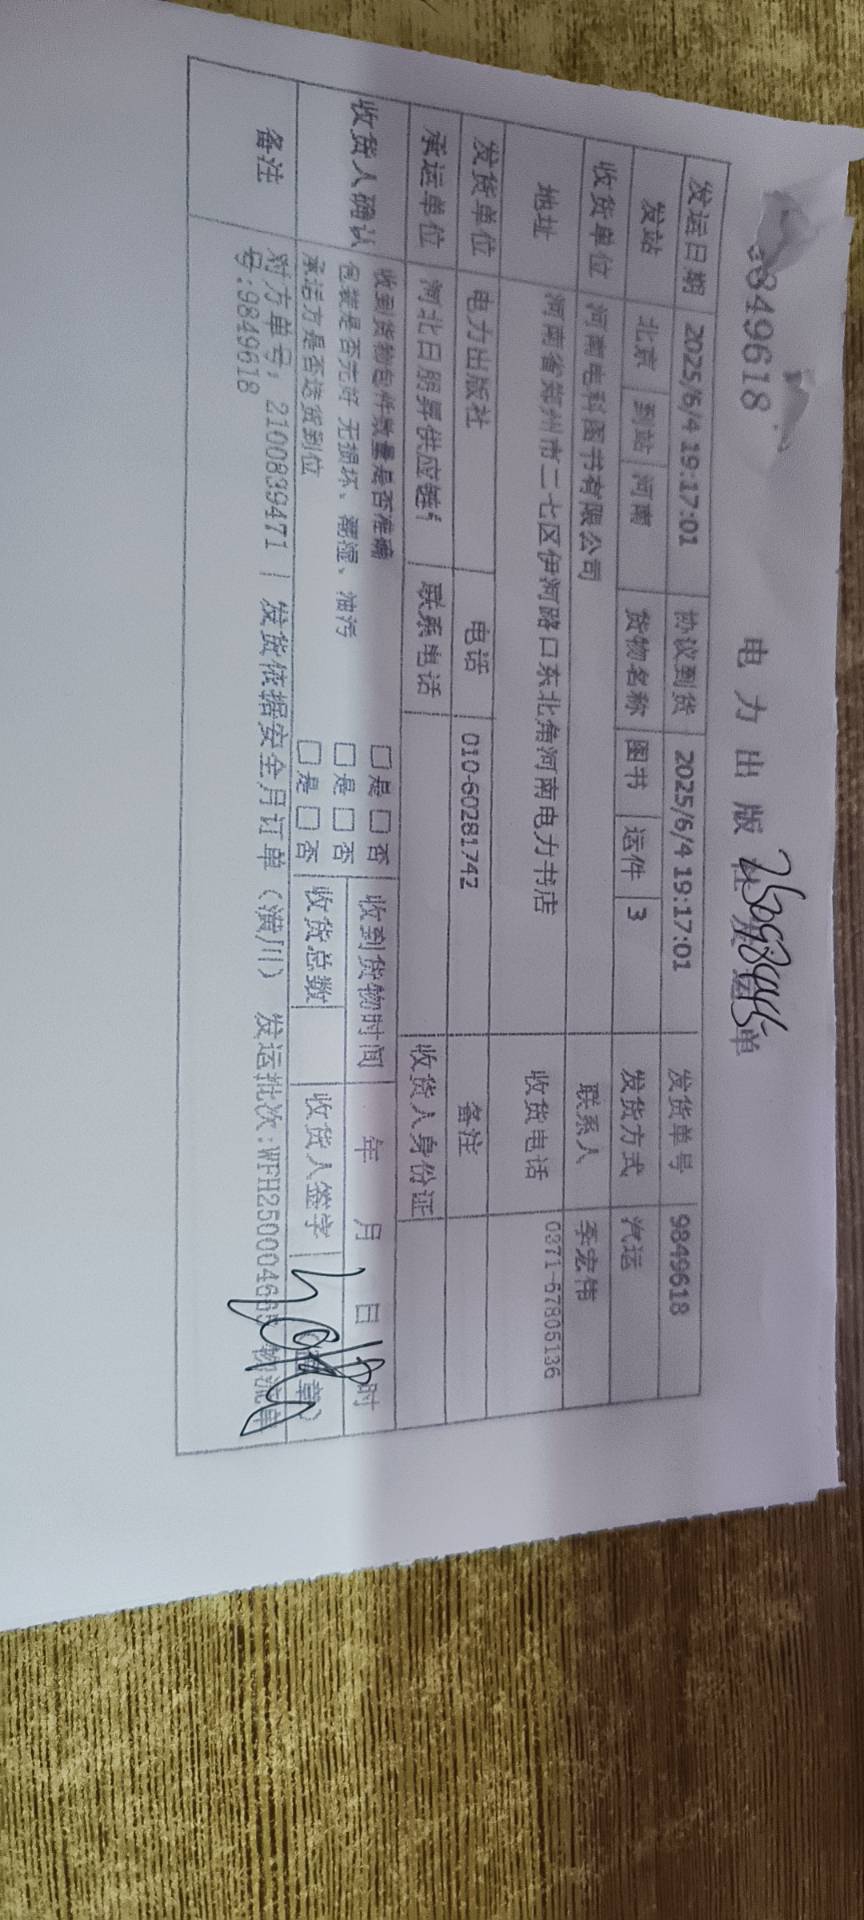 9849618
电力出版社发运单
发运日期 2025/6/4 19:17:01 协议到货 2025/6/4 19:17:01 发货单号 9849618
发站 北京 到站 河南 货物名称 图书 运件 3 发货方式 汽运
收货单位 河南电科图书有限公司 联系人 李宏伟
地址 河南省郑州市二七区伊河路口东北角河南电力书店 收货电话 0371-67905136
发货单位 电力出版社 电话 010-60281742 备注
承运单位 河北日朋昇供应链 联系电话 收货人身份证
收货人确认 收到货物包件数量是否准确 □是□否 收到货物时间 年 月 日 时
包装是否完好 无损坏、潮湿、油污 □是□否
承运方是否送货到位 □是□否 收货总数 收货人签字 章)
备注 对方单号: 2100839471 | 发货依据安全月订单(潢川) 发运批次:WFH250004665 物流单
号:9849618